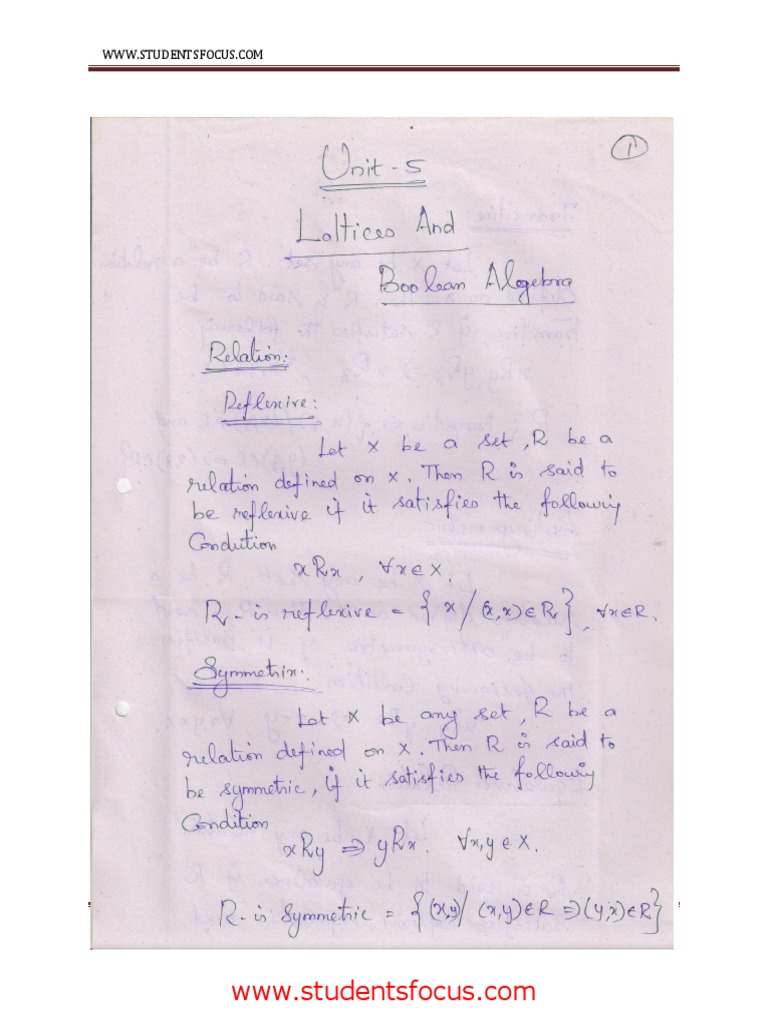 WWW.STUDENTSFOCUS.COM
1
Unit-5
Lattices And
Boolean Alogebra
Relation:
Reflexive:
Let X be a set, R be a
relation defined on X. Then R is said to
be reflexive if it satisfies the following
Condition
xRx, ∀x∈X.
R-is reflexive = {x/(x,x)∈R}, ∀x∈R.
Symmetrix:
Let X be any set, R be a
relation defined on X. Then R is said to
be symmetric, if it satisfies the following
Condition
xRy ⇒ yRx. ∀x,y∈X.
R-is Symmetric = {(x,y)/(x,y)∈R⇒(y,x)∈R}
www.studentsfocus.com